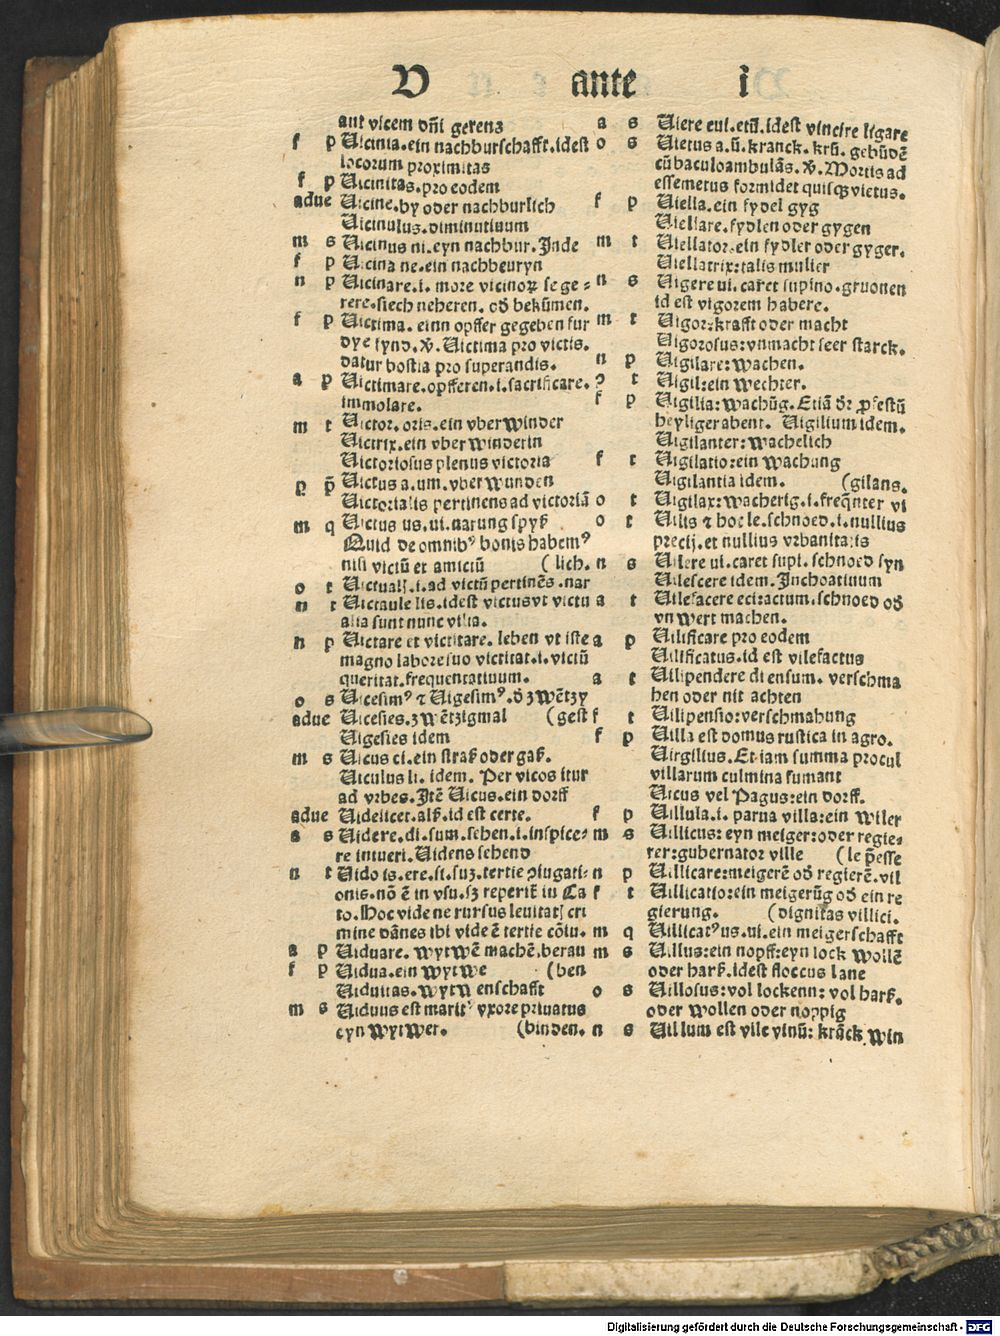 V ante i
aut vicem dñi gerens
f p Uicinia.ein nachburschafft.idest
locorum proximitas
f p Uicinitas.pro eodem
adue Uicine.by oder nachburlich
Uicinulus.diminutiuum
m s Uicinus ni.eyn nachbur.Inde
f p Uicina ne.ein nachbeuryn
n p Uicinare.i. more vicinoꝝ se ge⸗
rere.siech neheren. oď bekūmen.
f p Uictima. einn opffer gegeben fur
dye fynd.ꝟ. Uictima pro victis.
datur hostia pro superandis.
a p Uictimare.opfferen.i.sacrificare.
immolare.
m t Uictor.oris.ein vberwinder
Uictrix.ein vberwinderin
Uictoriosus plenus victoria
p p̄ Uictus a.um.vberwunden
Uictorialis pertinens ad victoriā
m q Uictus us.ui.narung spyß
Quid de omnibꝰ bonis habemꝰ
nisi victū et amictū (lich.
o t Uictualis.i.ad victū pertinēs.nar
n t Uictuale lis.idest victus vt victu
alia sunt nunc vilia.
n p Uictare et victitare. leben vt iste
magno labore suo victitat.i.victū
queritat.frequentatiuum.
o s Uicesimꝰ ⁊ Uigesimꝰ.ď zwētzy
adue Uicesies.zwētzigmal (gest
Uigesies idem
m s Uicus ci.ein straß oder gaß.
Uiculus li. idem. Per vicos itur
ad vrbes.Itē Uicus.ein dorff
adue Uidelicet.alß.id est certe.
a s Uidere.di.sum.sehen.i.inspice⸗
re intueri.Uidens sehend
n t Uido is.ere.si.suz.tertie ꝯiugati⸗
onis.nō ē in vsu.sz reperiť in Ca
to.Hoc vide ne rursus leuitatꝭ cri
mine dānes ibi vide ē tertie cōiu.
a p Uiduare. wytwē machē.berau
f p Uidua.ein wytwe (ben
Uiduitas.wytwenschafft
m s Uiduus est maritꝰ vxore priuatus
eyn wytwer. (binden.
a s Uiere eui.etū.idest vincire ligare
o s Uietus a.ū.kranck.krū.gebūdē
cū baculo ambulās.ꝟ.Mortis ad
esse metus formidet quisqꝫ vietus.
f p Uiella.ein fydel gyg
Uiellare.fydlen oder gygen
m t Uiellator.ein fydler oder gyger.
Uiellatrix:talis mulier
n s Uigere ui.caret supino.gruonen
id est vigorem habere.
m t Uigor:krafft oder macht
Uigorosus:vnmacht seer starck.
n p Uigilare:wachen.
ꝯ t Uigil:ein wechter.
f p Uigilia:wachūg.Etiā ďr ꝓfestū
heyliger abent. Uigilium idem.
Uigilanter:wachelich
f t Uigilatio:ein wachung
Uigilantia idem. (gilans.
o t Uigilax:wacherig.i.freq̄nter vi
o t Uilis ⁊ hoc le.schnoed.i.nullius
precij.et nullius vrbanitatis
n s Uilere ui.caret supi.schnoed syn
Uilescere idem.Inchoatiuum
a t Uilefacere eci:actum.schnoed oď
vnwert machen.
a p Uilificare pro eodem
Uilificatus.id est vilefactus
a t Uilipendere di ensum. verschma
hen oder nit achten
f t Uilipensio:verschmahung
f p Uilla est domus rustica in agro.
Uirgilius.Et iam summa procul
villarum culmina fumant
Uicus vel Pagus:ein dorff.
f p Uillula.i. parua villa:ein wiler
m s Uillicus:eyn meiger:oder regie⸗
rer:gubernator ville (le p̄esse
n p Uillicare:meigerē oď regierē.vil
f t Uillicatio:ein meigerūg oď ein re
gierung. (dignitas villici.
m q Uillicatꝰus.ui.ein meigerschafft
m s Uillus:ein nopff:eyn lock wollē
oder harß.idest floccus lane
o s Uillosus:vol lockenn:vol harß.
oder wollen oder noppig
n s Uillum est vile vinū: krāck win
Digitalisierung gefördert durch die Deutsche Forschungsgemeinschaft - DFG